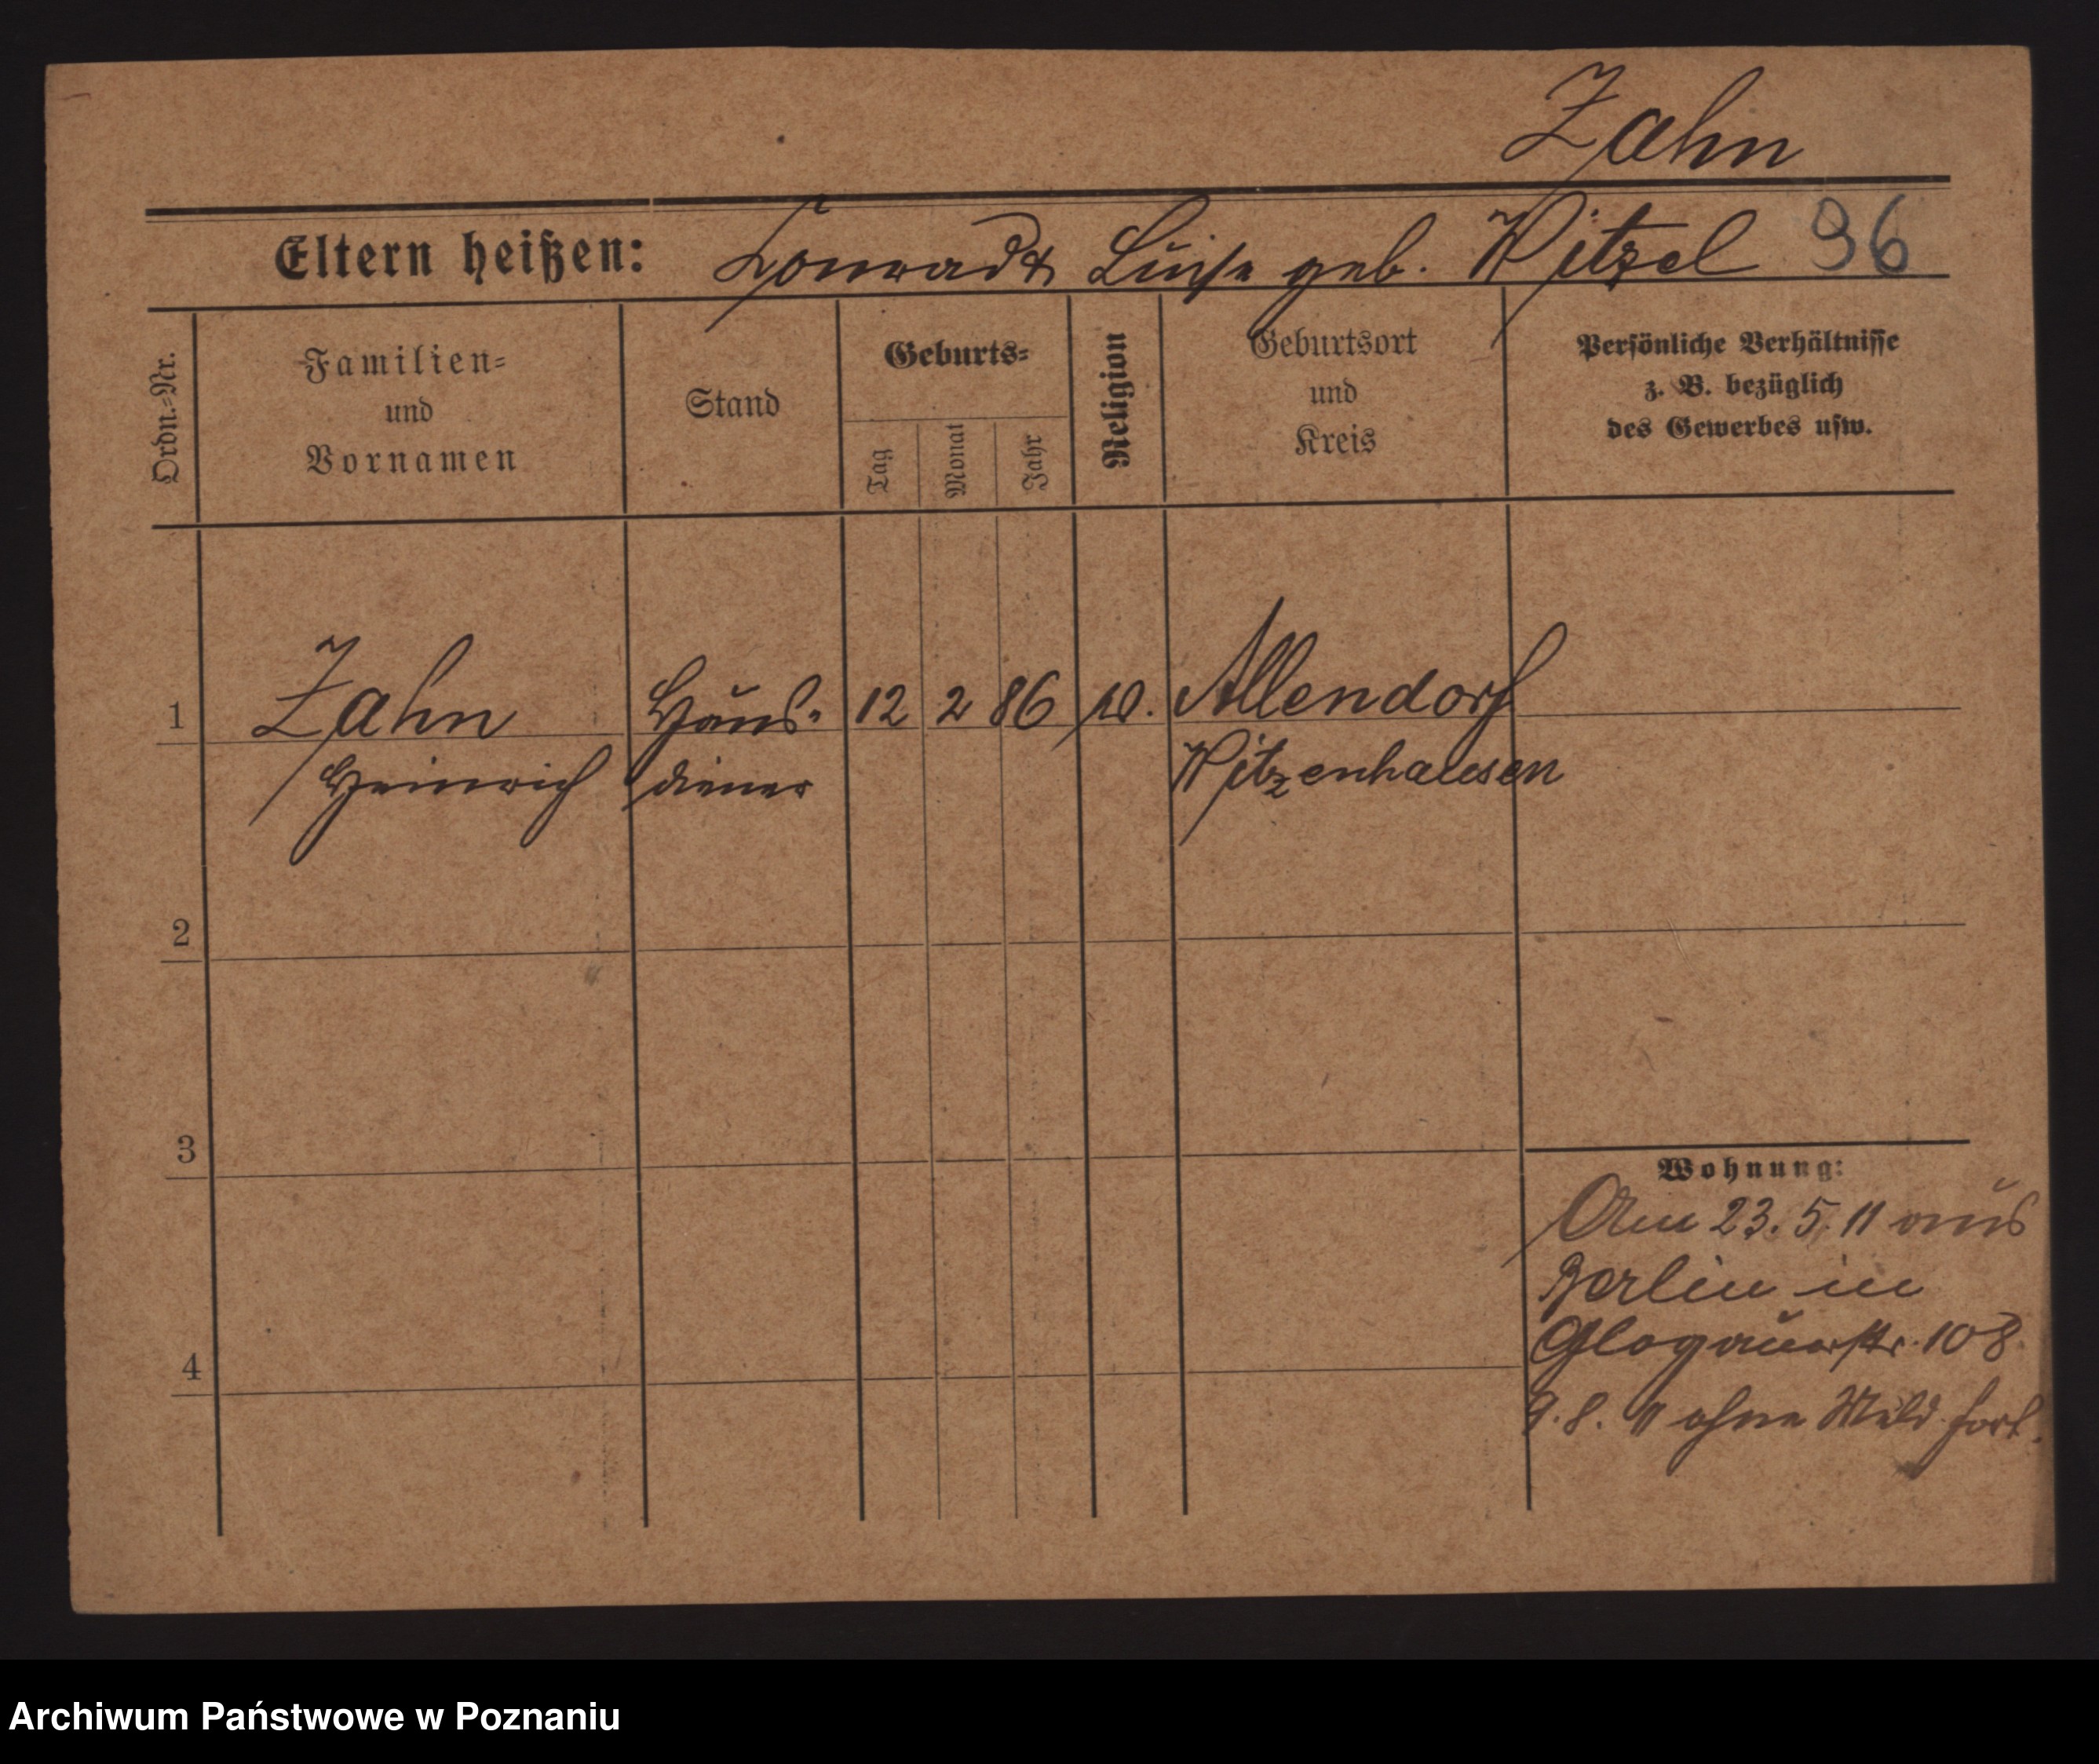 Zahn
Eltern heißen: Konrad & Luise geb. Witzel 96
Ordn.-Nr.
Familien-
und
Vornamen
Stand
Geburts-
Tag
Monat
Jahr
Religion
Geburtsort
und
Kreis
Persönliche Verhältnisse
z. B. bezüglich
des Gewerbes usw.
1 Zahn Haus- 12 2 86 Allendorf
Heinrich diener Witzenhausen
2
3
Wohnung:
Am 23. 5. 11 aus
Berlin in
Glogauerstr. 108
4
9. 8. 11 ohne Meld. fort.
Archiwum Państwowe w Poznaniu